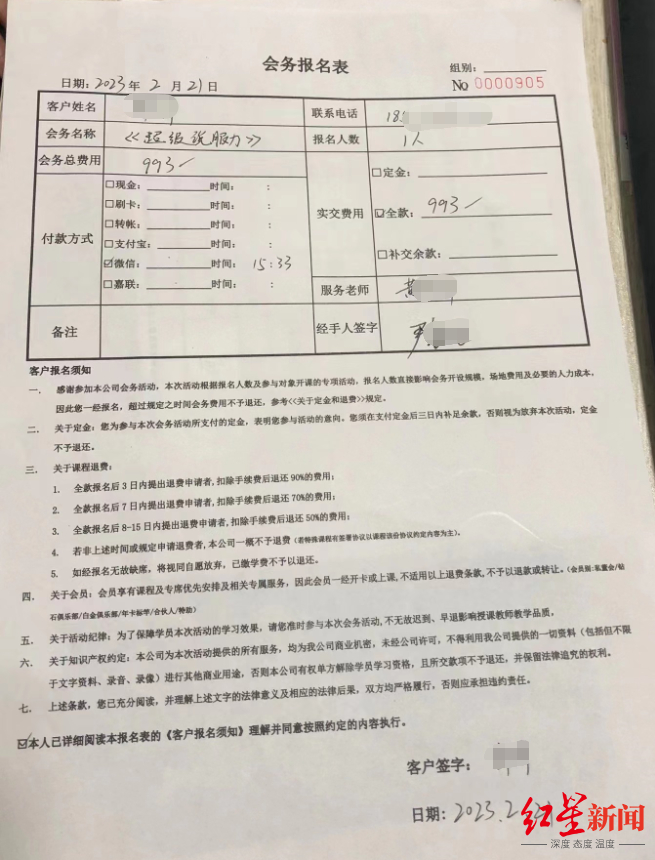 会务报名表
组别：
日期：2023年 2 月 21 日
No 0000905
客户姓名
联系电话 18
会务名称 《超级说服力》
报名人数 1人
会务总费用 993/
付款方式
□现金： 时间： ：
□刷卡： 时间： ：
□转帐： 时间： ：
□支付宝： 时间： ：
☑微信： 时间： 15:33
□嘉联： 时间： ：
实交费用
□定金：
☑全款： 993/
□补交余款：
服务老师 黄
备注
经手人签字
客户报名须知
一． 感谢参加本公司会务活动，本次活动根据报名人数及参与对象开课的专项活动，报名人数直接影响会务开设规模，场地费用及必要的人力成本，
因此您一经报名，超过规定之时间会务费用不予退还，参考<<关于定金和退费>>规定。
二． 关于定金：您为参与本次会务活动所支付的定金，表明您参与活动的意向，您须在支付定金后三日内补足余款，否则视为放弃本次活动，定金
不予退还。
三． 关于课程退费：
1. 全款报名后 3 日内提出退费申请者,扣除手续费后退还 90%的费用；
2. 全款报名后 7 日内提出退费申请者,扣除手续费后退还 70%的费用；
3. 全款报名后 8-15 日内提出退费申请者,扣除手续费后退还 50%的费用；
4. 若非上述时间或规定申请退费者,本公司一概不予退费（若特殊课程有签署协议以课程该份协议约定内容为主）。
5. 如经报名无故缺席，将视同自愿放弃，已缴学费不予以退还。
四． 关于会员：会员享有课程及专席优先安排及相关专属服务，因此会员一经开卡或上课,不适用以上退费条款,不予以退款或转让。(会员指:私董会/钻
石俱乐部/白金俱乐部/年卡标学/合伙人/特助)
五． 关于活动纪律：为了保障学员本次活动的学习效果，请您准时参与本次会务活动,不无故迟到、早退影响授课教师教学品质。
六． 关于知识产权约定：本公司为本次活动提供的所有服务，均为我公司商业机密，未经公司许可，不得利用我公司提供的一切资料（包括但不限
于文字资料、录音、录像）进行其他商业用途，否则本公司有权单方解除学员学习资格，且所交款项不予退还，并保留法律追究的权利。
七． 上述条款，您已充分阅读，并理解上述文字的法律意义及相应的法律后果，双方均严格履行，否则应承担违约责任。
☑本人已详细阅读本报名表的《客户报名须知》理解并同意按照约定的内容执行。
客户签字：
日期：2023.2.21
红星新闻
深度 态度 温度